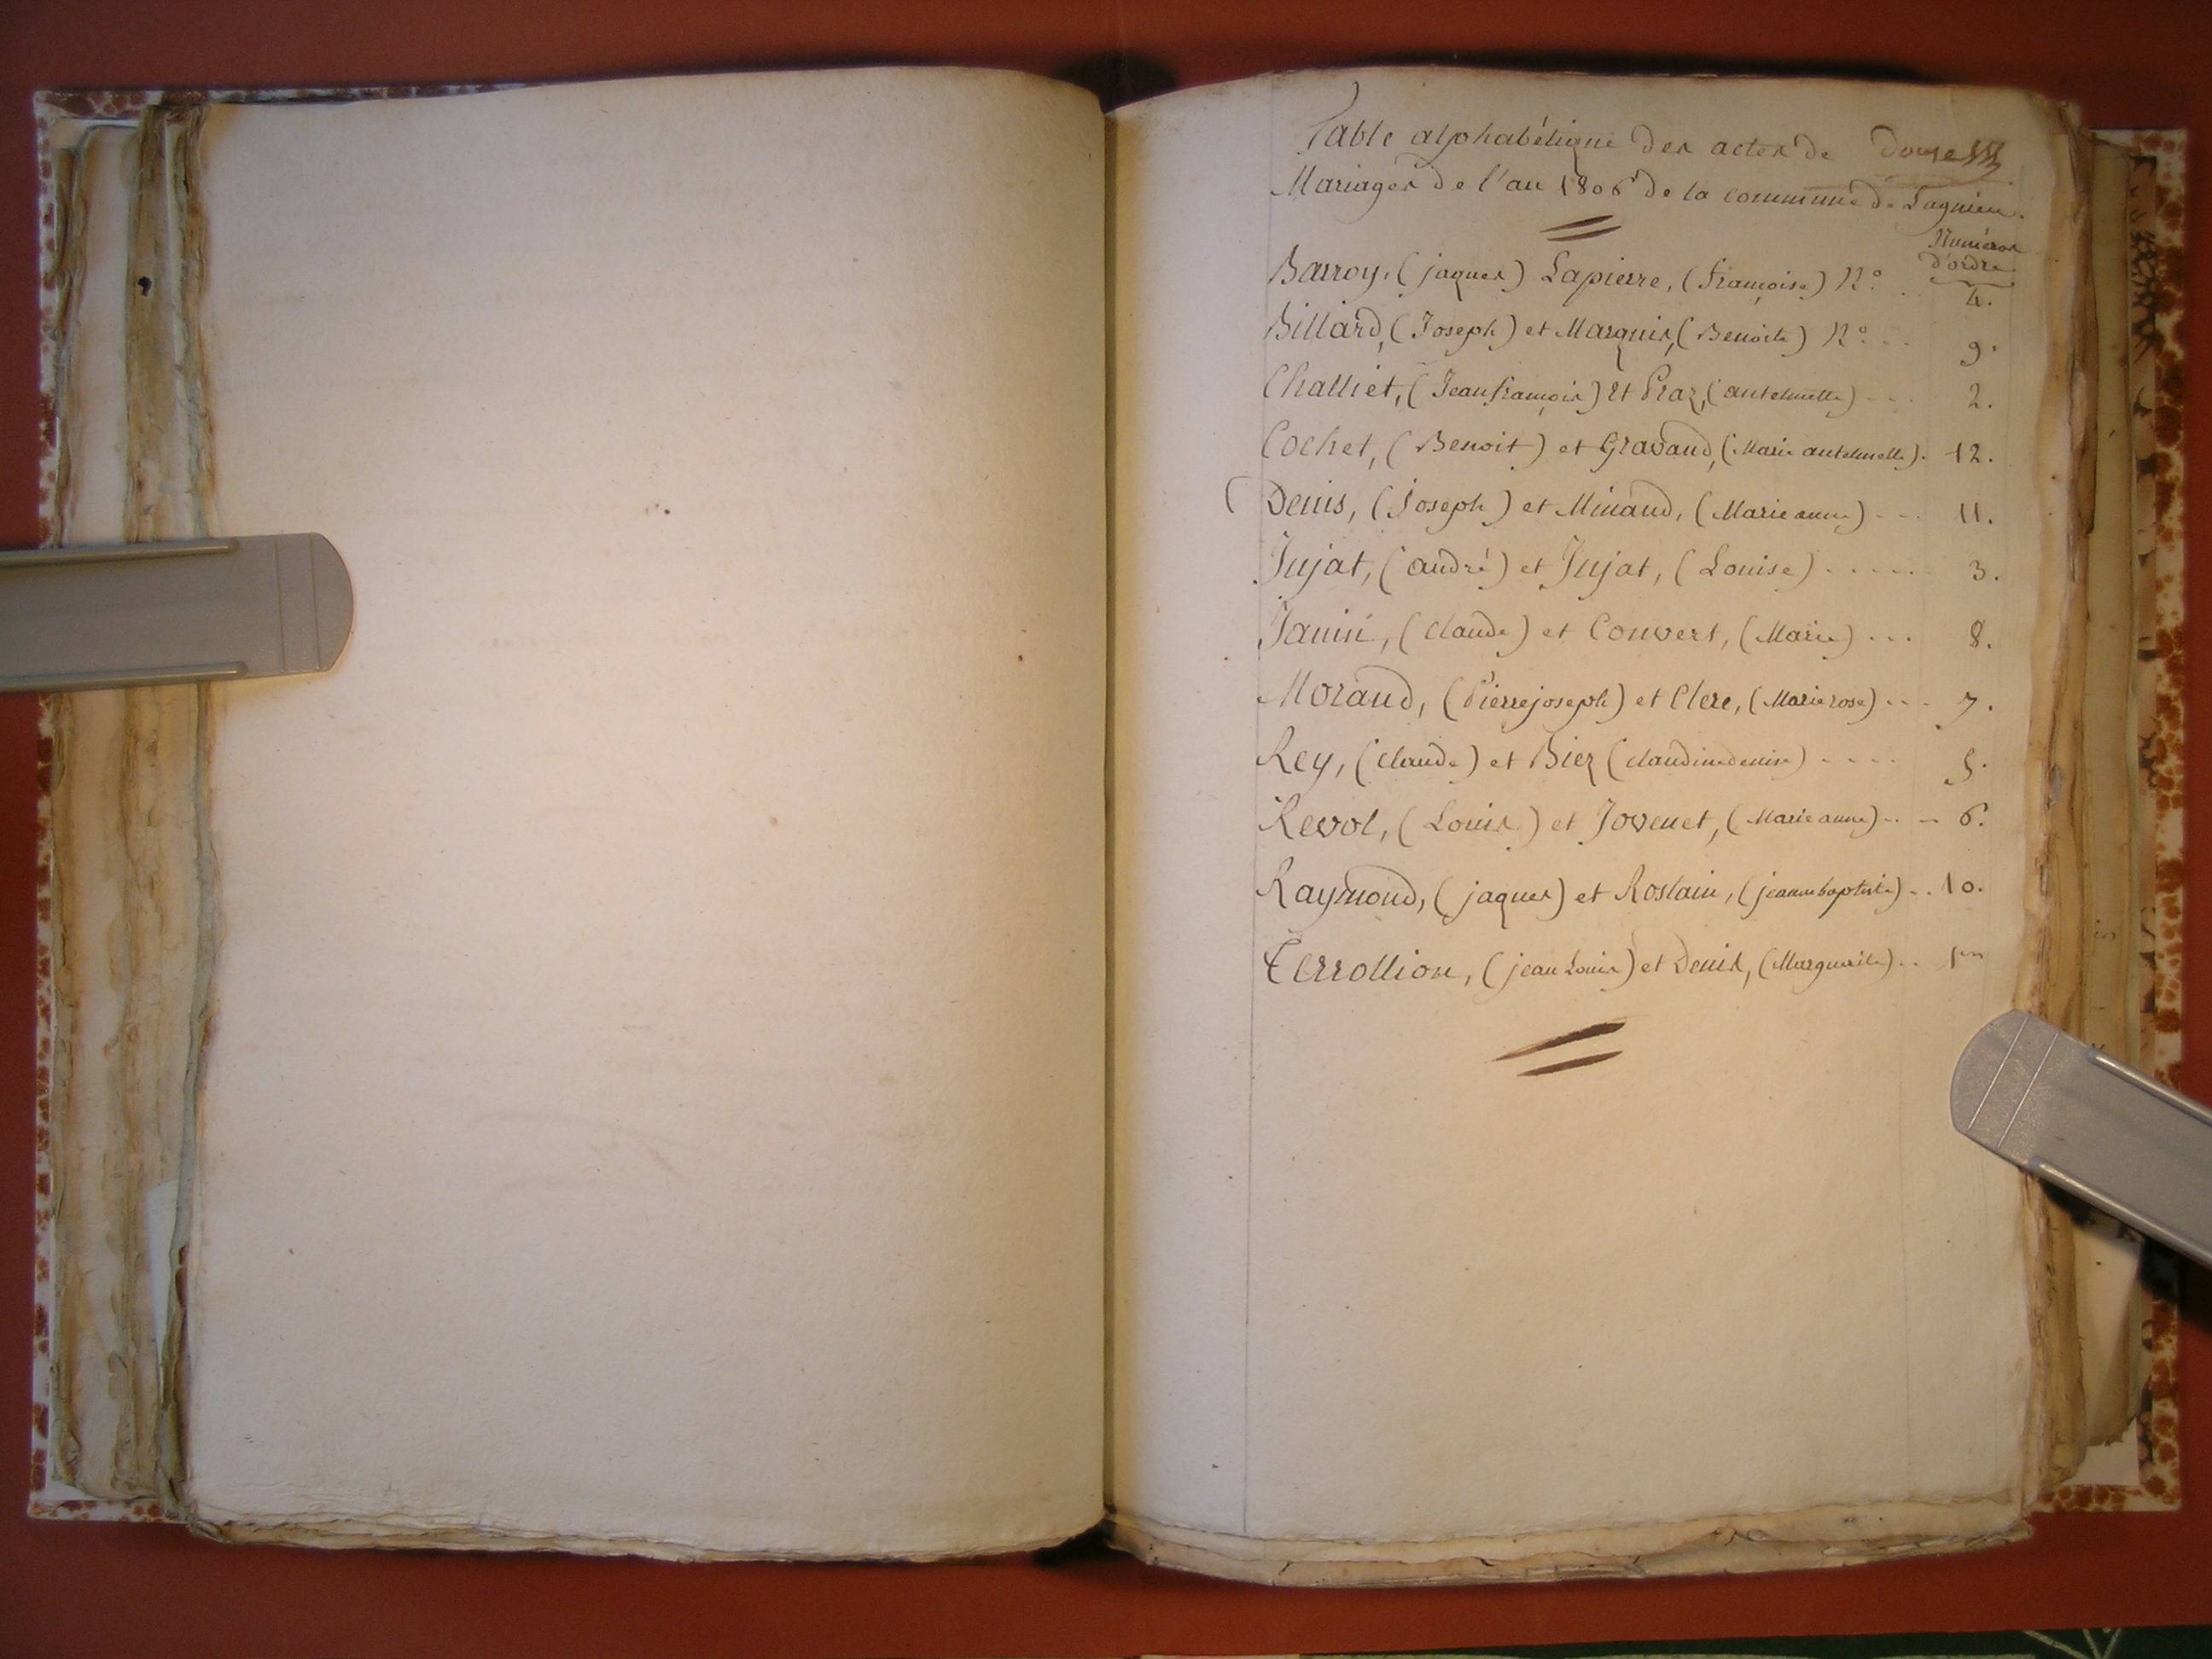 Table alphabétique des actes de Douze
Mariages de l'an 1806 de la commune de Lagnieu.
Numéros
d'ordre
Barroy, (jaques) Lapierre, (françoise) N.° .. 4.
Billard, (Joseph) et Marquis, (Benoite) N.° ... 9.
Challiet, (Jean françois) et Praz, (antelmette) ... 2.
Cochet, (Benoit) et Gravaud, (Marie antelmette). 12.
Denis, (Joseph) et Minaud, (Marie anne) ... 11.
Jujat, (andré) et Jujat, (Louise) ...... 3.
Janin, (claude) et Convert, (Marie) ... 8.
Morand, (Pierre joseph) et Clere, (Marie rose) ... 7.
Rey, (claude) et Biez (claudine denise) .... 5.
Revol, (Louis) et Jovenet, (Marie anne) .. - 6.
Raymond, (jaques) et Rostain, (jeanne baptiste) .. 10.
Terrollion, (jean Louis) et Denis, (Marguerite) .. 1er